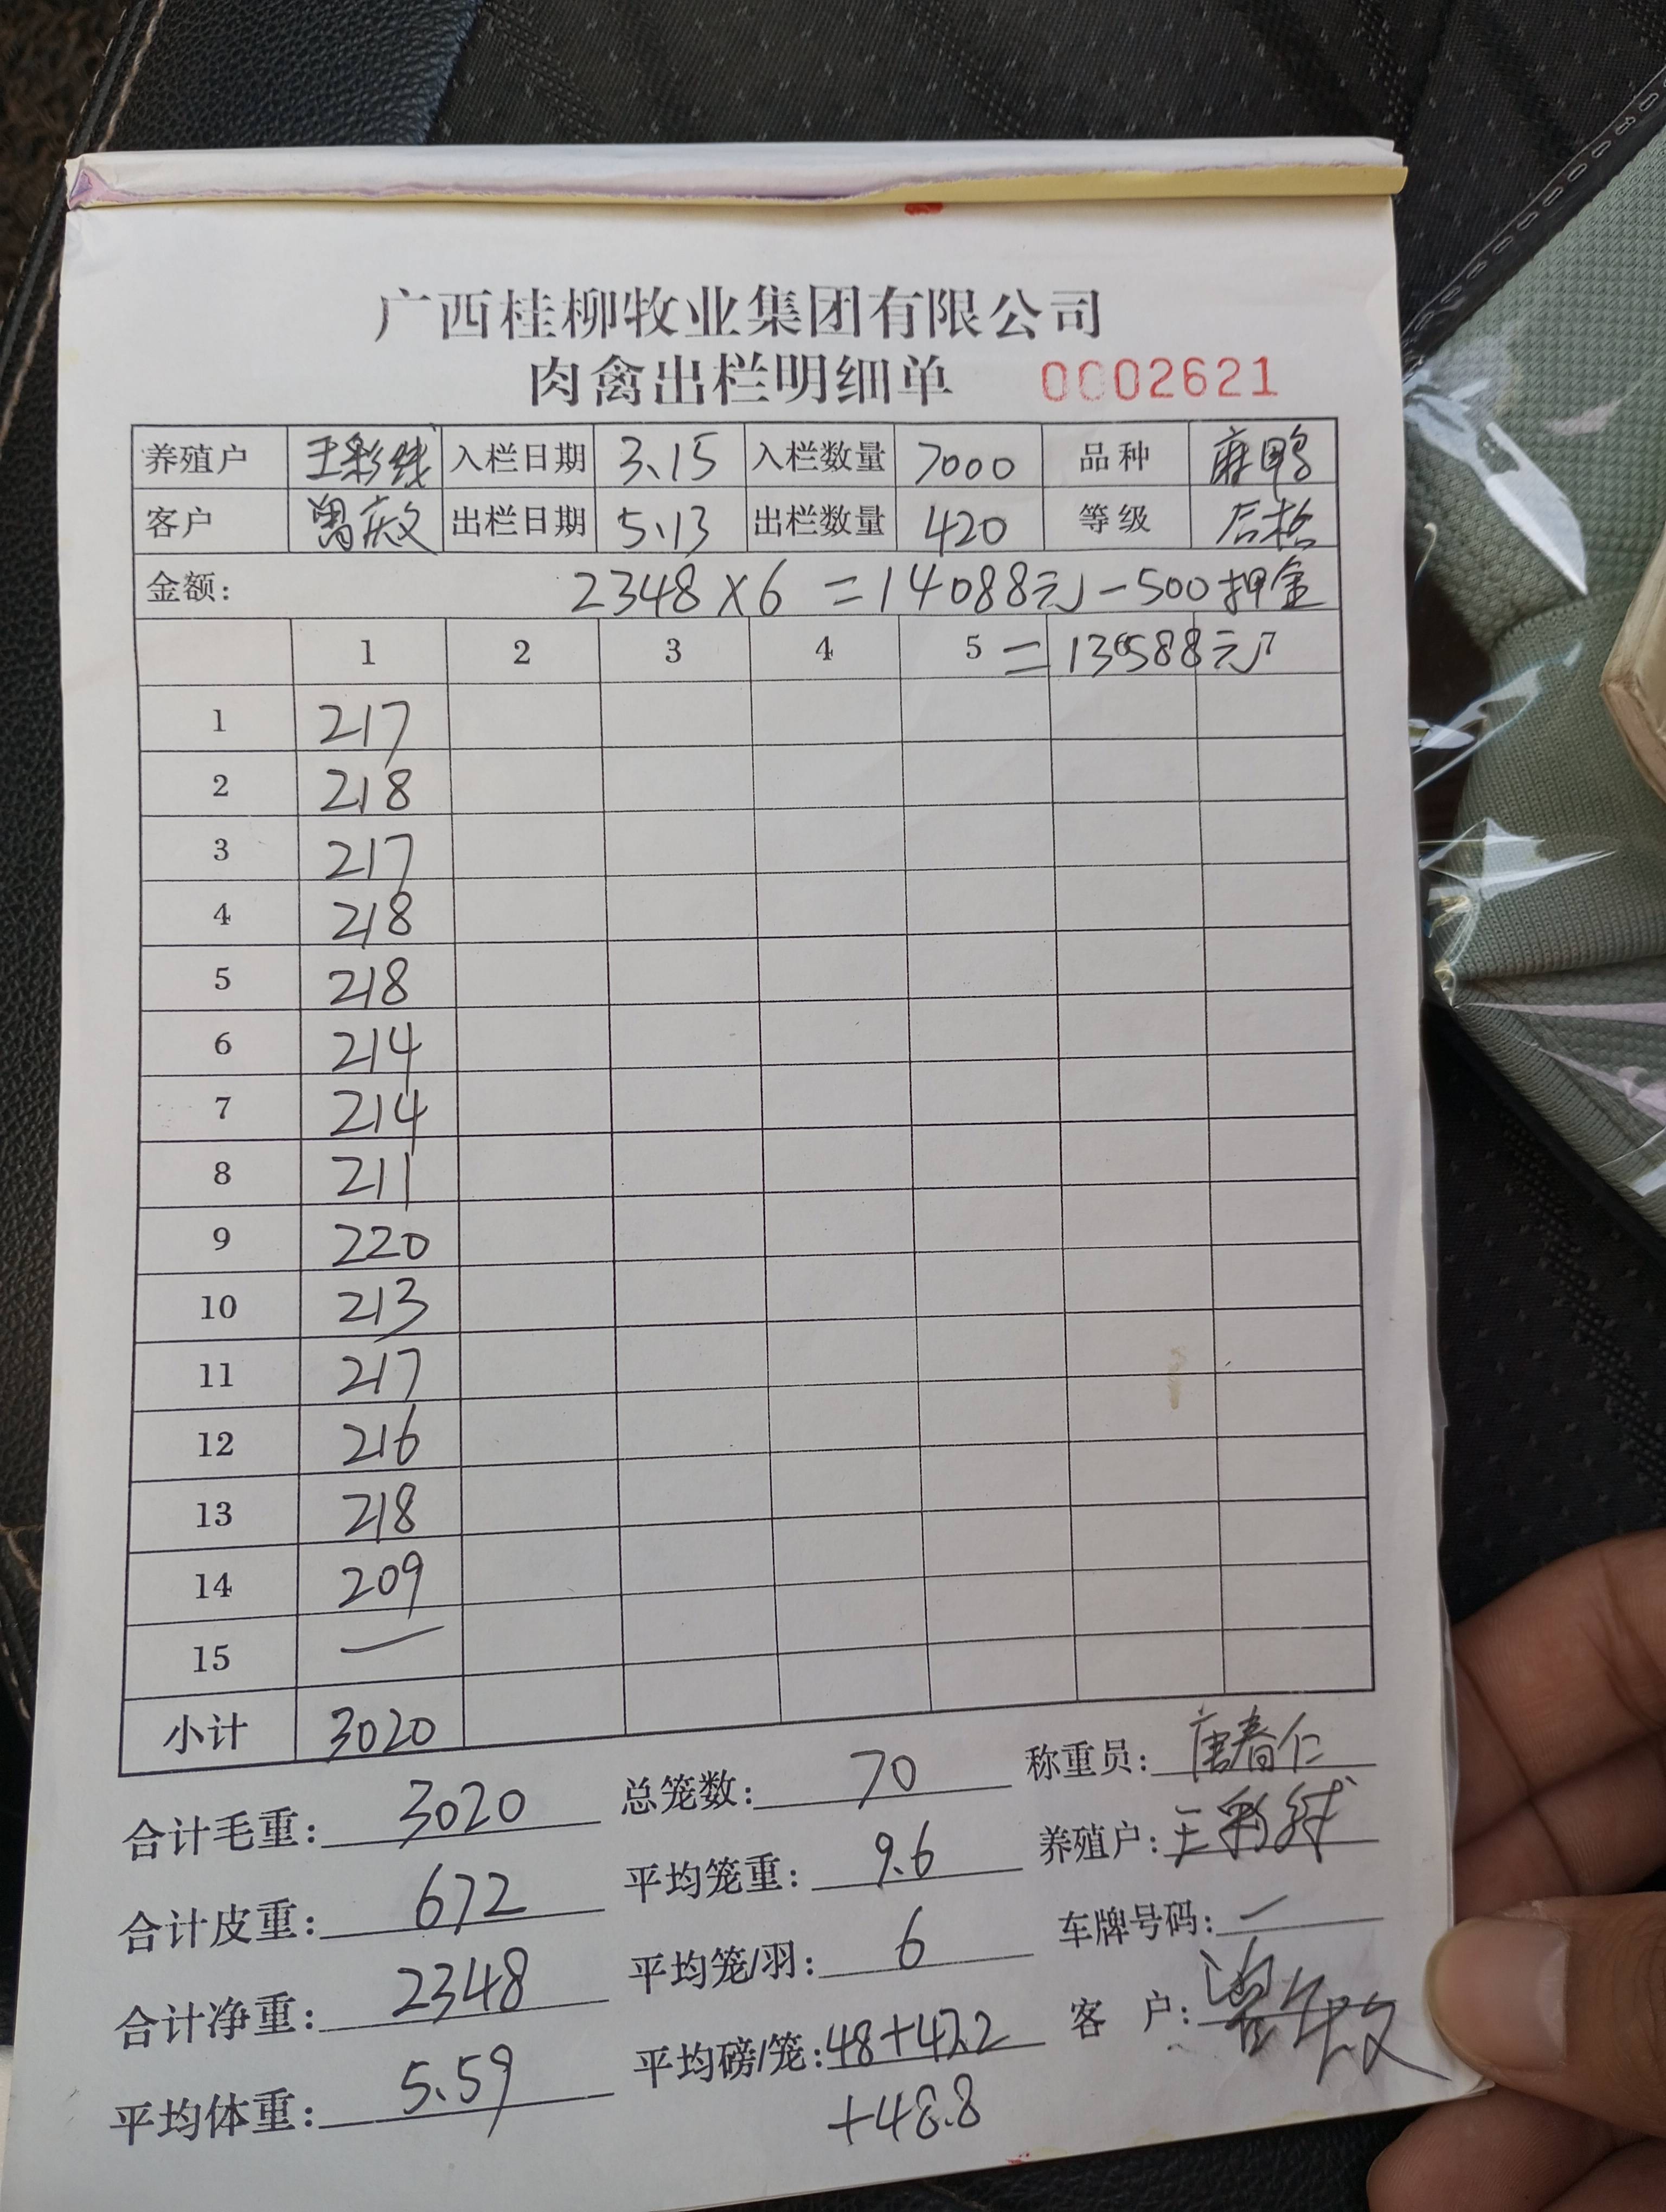 广西桂柳牧业集团有限公司
肉禽出栏明细单 0002621
养殖户 王彩线 入栏日期 3.15 入栏数量 7000 品种 麻鸭
客户 出栏日期 5.13 出栏数量 420 等级
金额: 2348×6=14088元-500押金
1 2 3 4 5 =13588元
1 217
2 218
3 217
4 218
5 218
6 214
7 214
8 211
9 220
10 213
11 217
12 216
13 218
14 209
15 一
小计 3020
合计毛重: 3020 总笼数: 70 称重员: 唐春仁
合计皮重: 672 平均笼重: 9.6 养殖户: 王彩线
合计净重: 2348 平均笼/羽: 6 车牌号码: 一
平均体重: 5.59 平均磅/笼: 48+47.2 客户:
+48.8